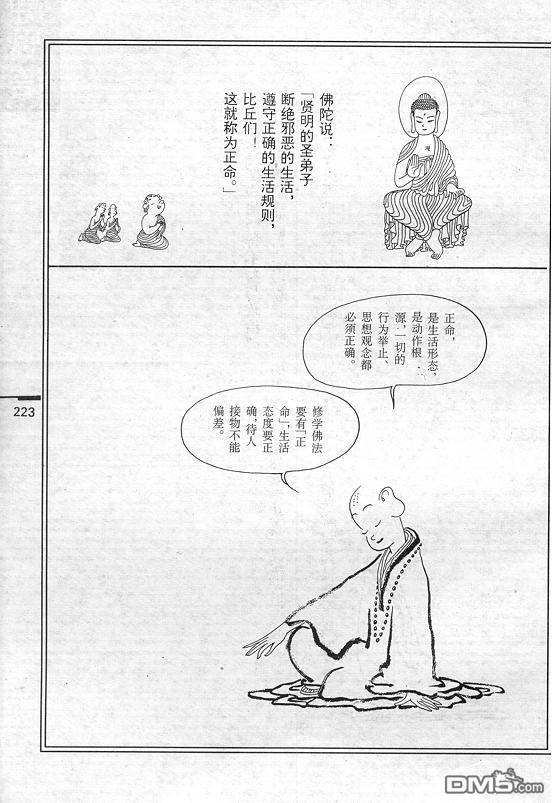 佛陀说：
「贤明的圣弟子
断绝邪恶的生活，
遵守正确的生活规则，
比丘们！
这就称为正命。」
正命，
是生活形态，
是动作根
源，一切的
行为举止、
思想观念都
必须正确。
修学佛法
要有「正
命」，生活
态度要正
确，待人
接物不能
偏差。
223
DM5.com